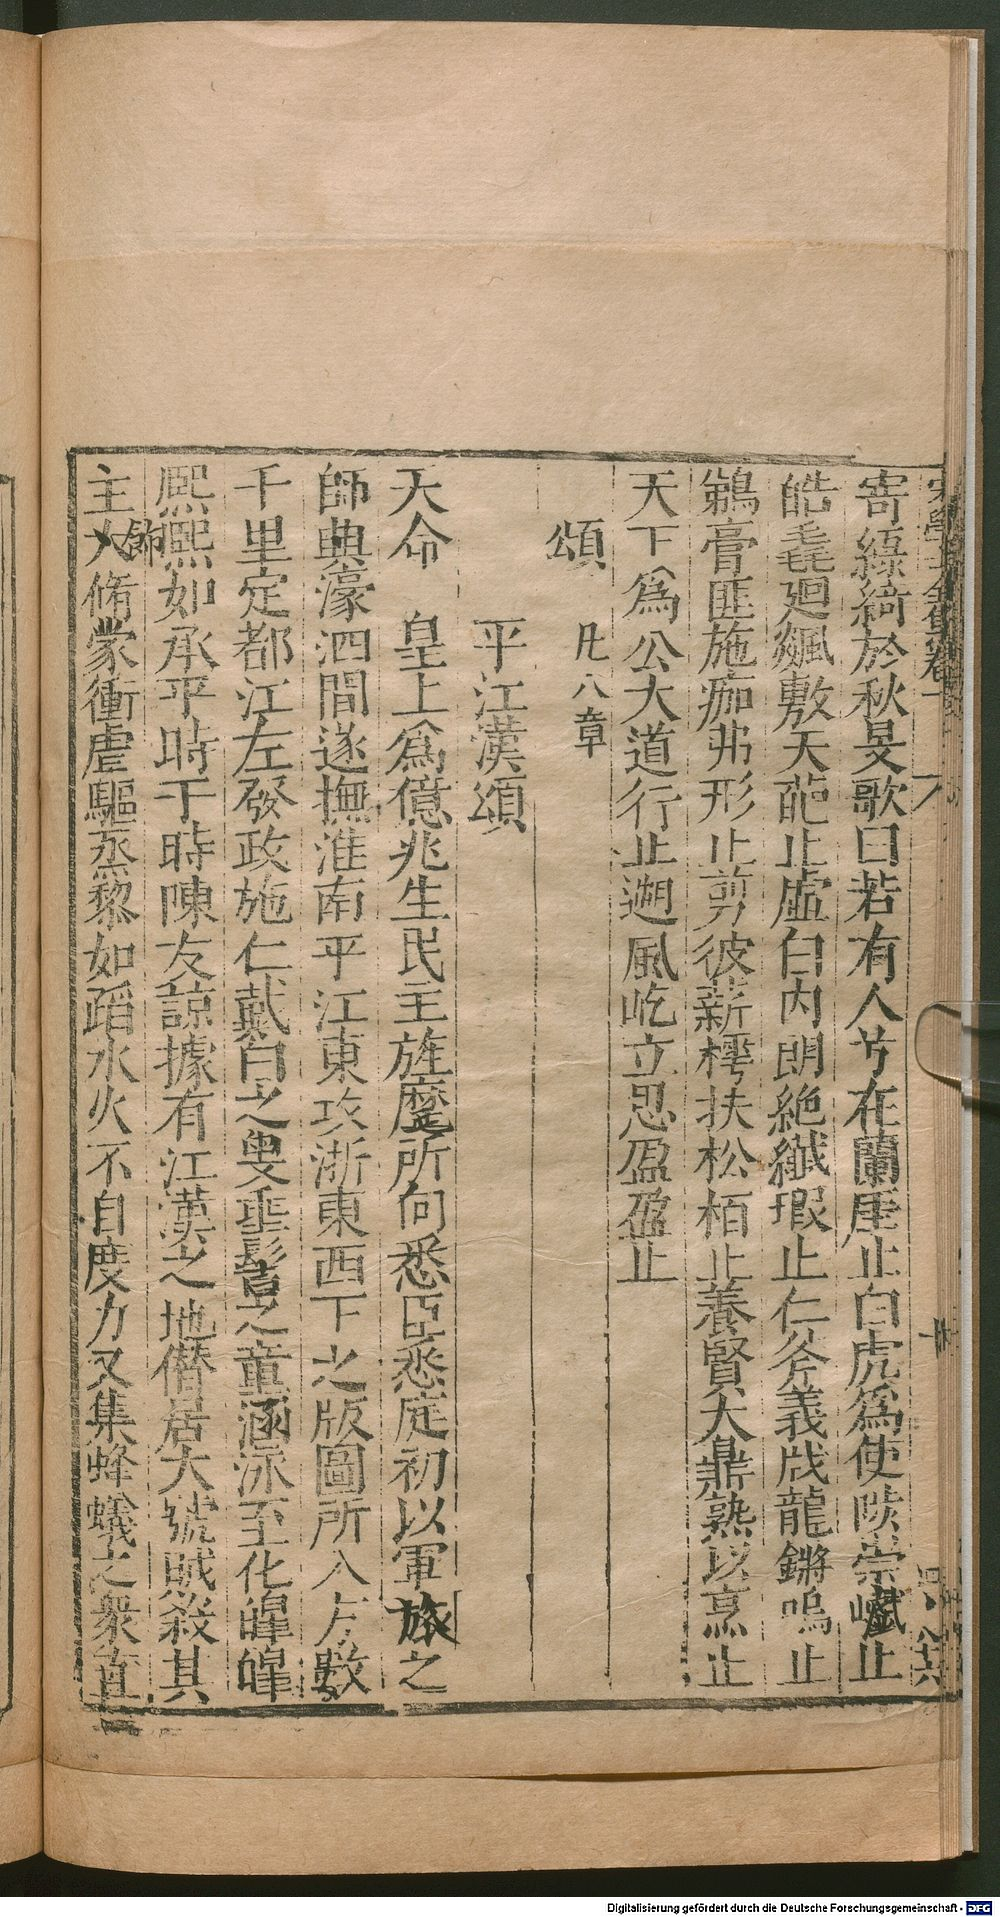 寄綠綺於秋旻歌曰若有人兮在蘭厓止白虎爲使陟崇巘止
皓毳廻飊敷天葩止虛白內明絕纖瑕止仁斧義戕龍鏘鳴止
鵜膏匪施痂弗形止剪彼薪樗扶松栢止養賢大鼎熟以烹止
天下爲公大道行止遡風屹立思盈盈止
頌 凡八章
平江漢頌
天命 皇上爲億兆生民主旌麾所向悉臣悉庭初以軍旅之
師典濠泗間遂撫淮南平江東攻浙東西下之版圖所入方數
千里定都江左發政施仁戴白之叟垂髫之童涵泳至化皥皥
熙熙如承平時于時陳友諒據有江漢之地僭居大號賊殺其
主大脩蒙衝虐驅烝黎如蹈水火不自度力又集蜂蟻之衆直
飾
Digitalisierung gefördert durch die Deutsche Forschungsgemeinschaft - DFG